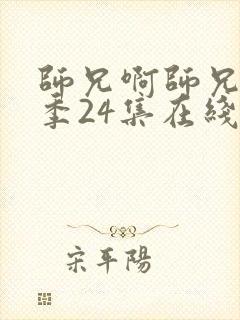 師兄啊師兄
季24集在綫
宋平陽